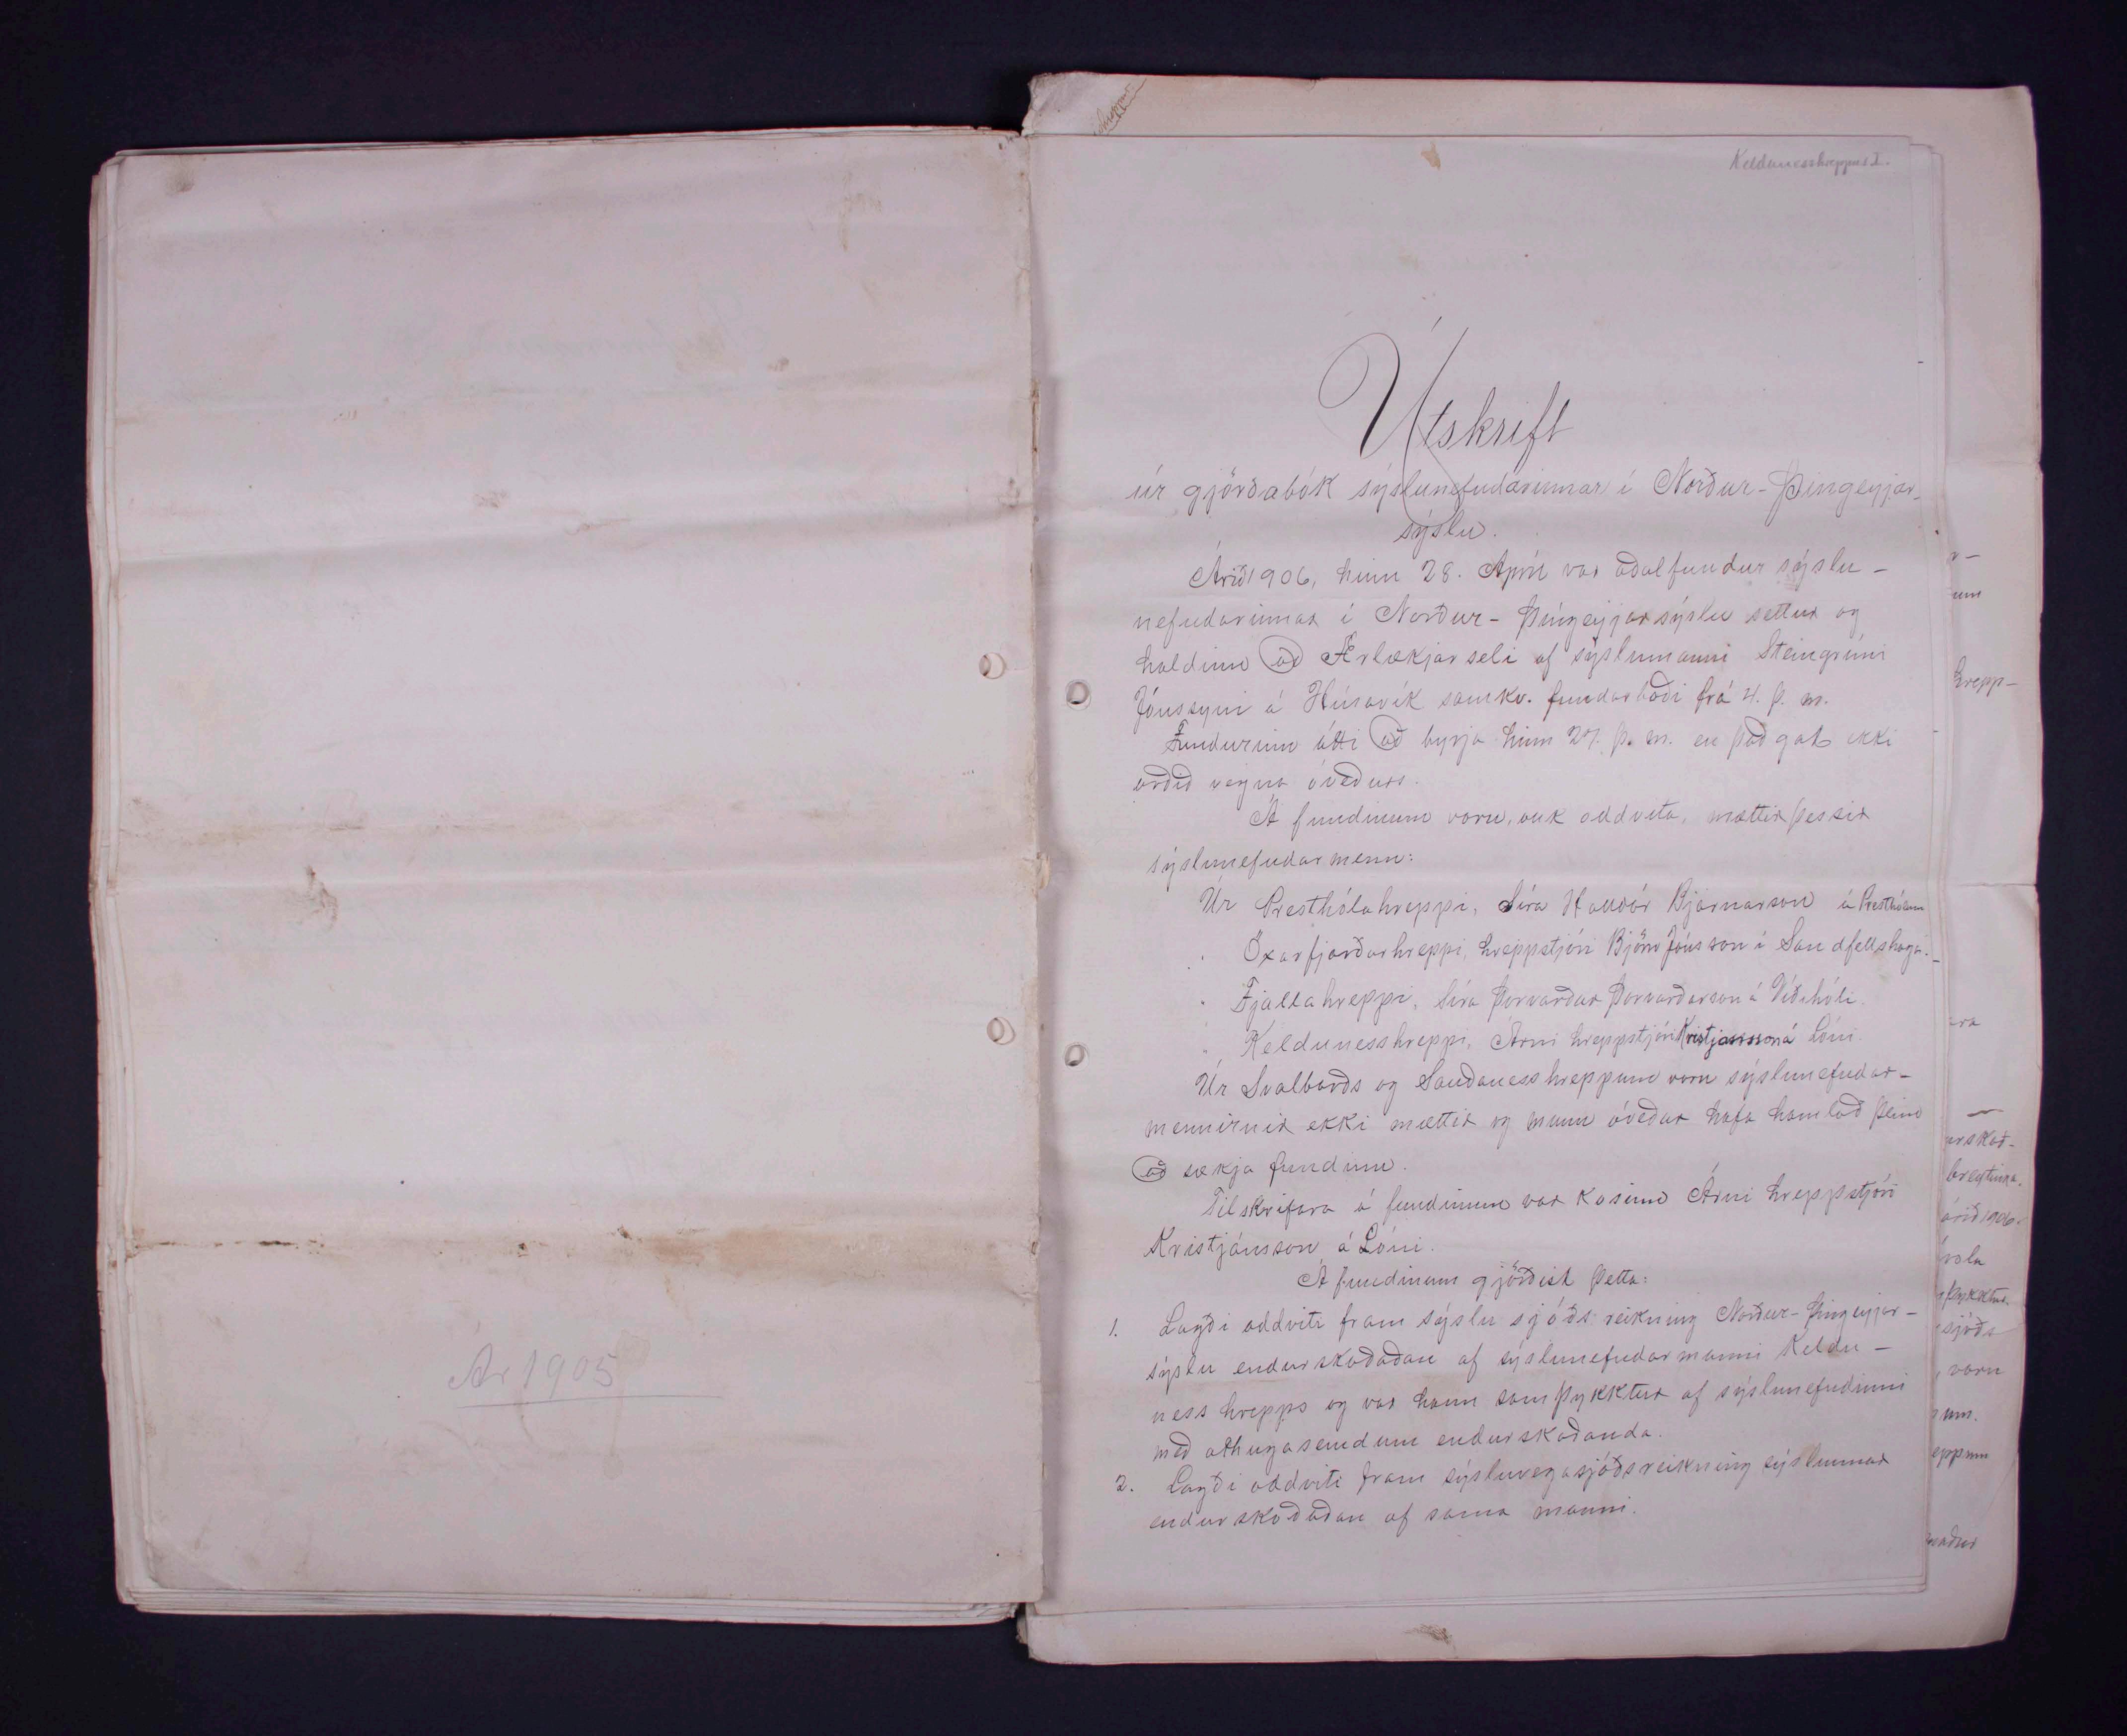 Ár 1905
Keldunesshreppur I.
Útskrift
úr gjörðabók sýslunefndarinnar í Norður-Þingeyjar-
sýslu.
Árið 1906, hinn 28. Apríl var aðalfundur sýslu-
nefndarinnar í Norður-Þingeyjarsýslu settur og
haldinn að Ærlækjarseli af sýslumanni Steingrími
Jónssyni á Húsavík samkv. fundarboði frá 4. þ. m.
Fundurinn átti að byrja hinn 27. þ. m. en það gat ekki
orðið vegna óveðurs.
Á fundinum voru, auk oddvita, mættir þessir
sýslunefndarmenn:
Úr Presthólahreppi, Síra Halldór Bjarnarson á Presthólum
" Öxarfjarðarhreppi, hreppstjóri Björn Jónsson í Sandfellshaga.
" Fjallahreppi, Síra Þorvarður Þorvarðarson á Víðihóli.
" Keldunesshreppi, Árni hreppstjóri Kristjánsson á Lóni.
Úr Svalbarðs og Sauðanesshreppum voru sýslunefndar-
mennirnir ekki mættir og munu óveður hafa hamlað þeim
að sækja fundinn.
Til skrifara á fundinum var kosinn Árni hreppstjóri
Kristjánsson á Lóni.
Á fundinum gjörðist þetta:
1. Lagði oddviti fram sýslusjóðs reikning Norður-Þingeyjar-
sýslu endurskoðaðan af sýslunefndarmanni Keldu-
ness hrepps og var hann samþykktur af sýslunefndinni
með athugasemdum endurskoðanda.
2. Lagði oddviti fram sýsluvegasjóðsreikning sýslunnar
endurskoðaðan af sama manni.
hrepp-
árið 1906.
voru
eppum